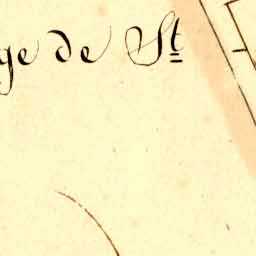 ge de St